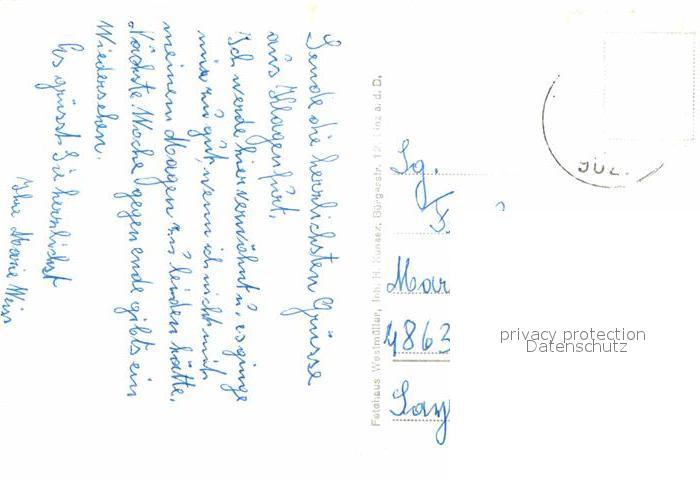 Sende die herzlichsten Grüsse
aus Klagenfurt.
Ich werde hier verwöhnt u. es ginge
mir zu gut, wenn ich nicht mit
meinem Magen zu leiden hätte.
Nächste Woche gegen ende gibts ein
Wiedersehen.
Es grüsst Sie herzlichst
Ihre Marie Weiss
Fotohaus Westmüller, Inh. H. Kunsek, Bürgerstr. 12, Linz a. d. D.
JUL.
Sg.
F.
Mar
4863
Say
privacy protection
Datenschutz